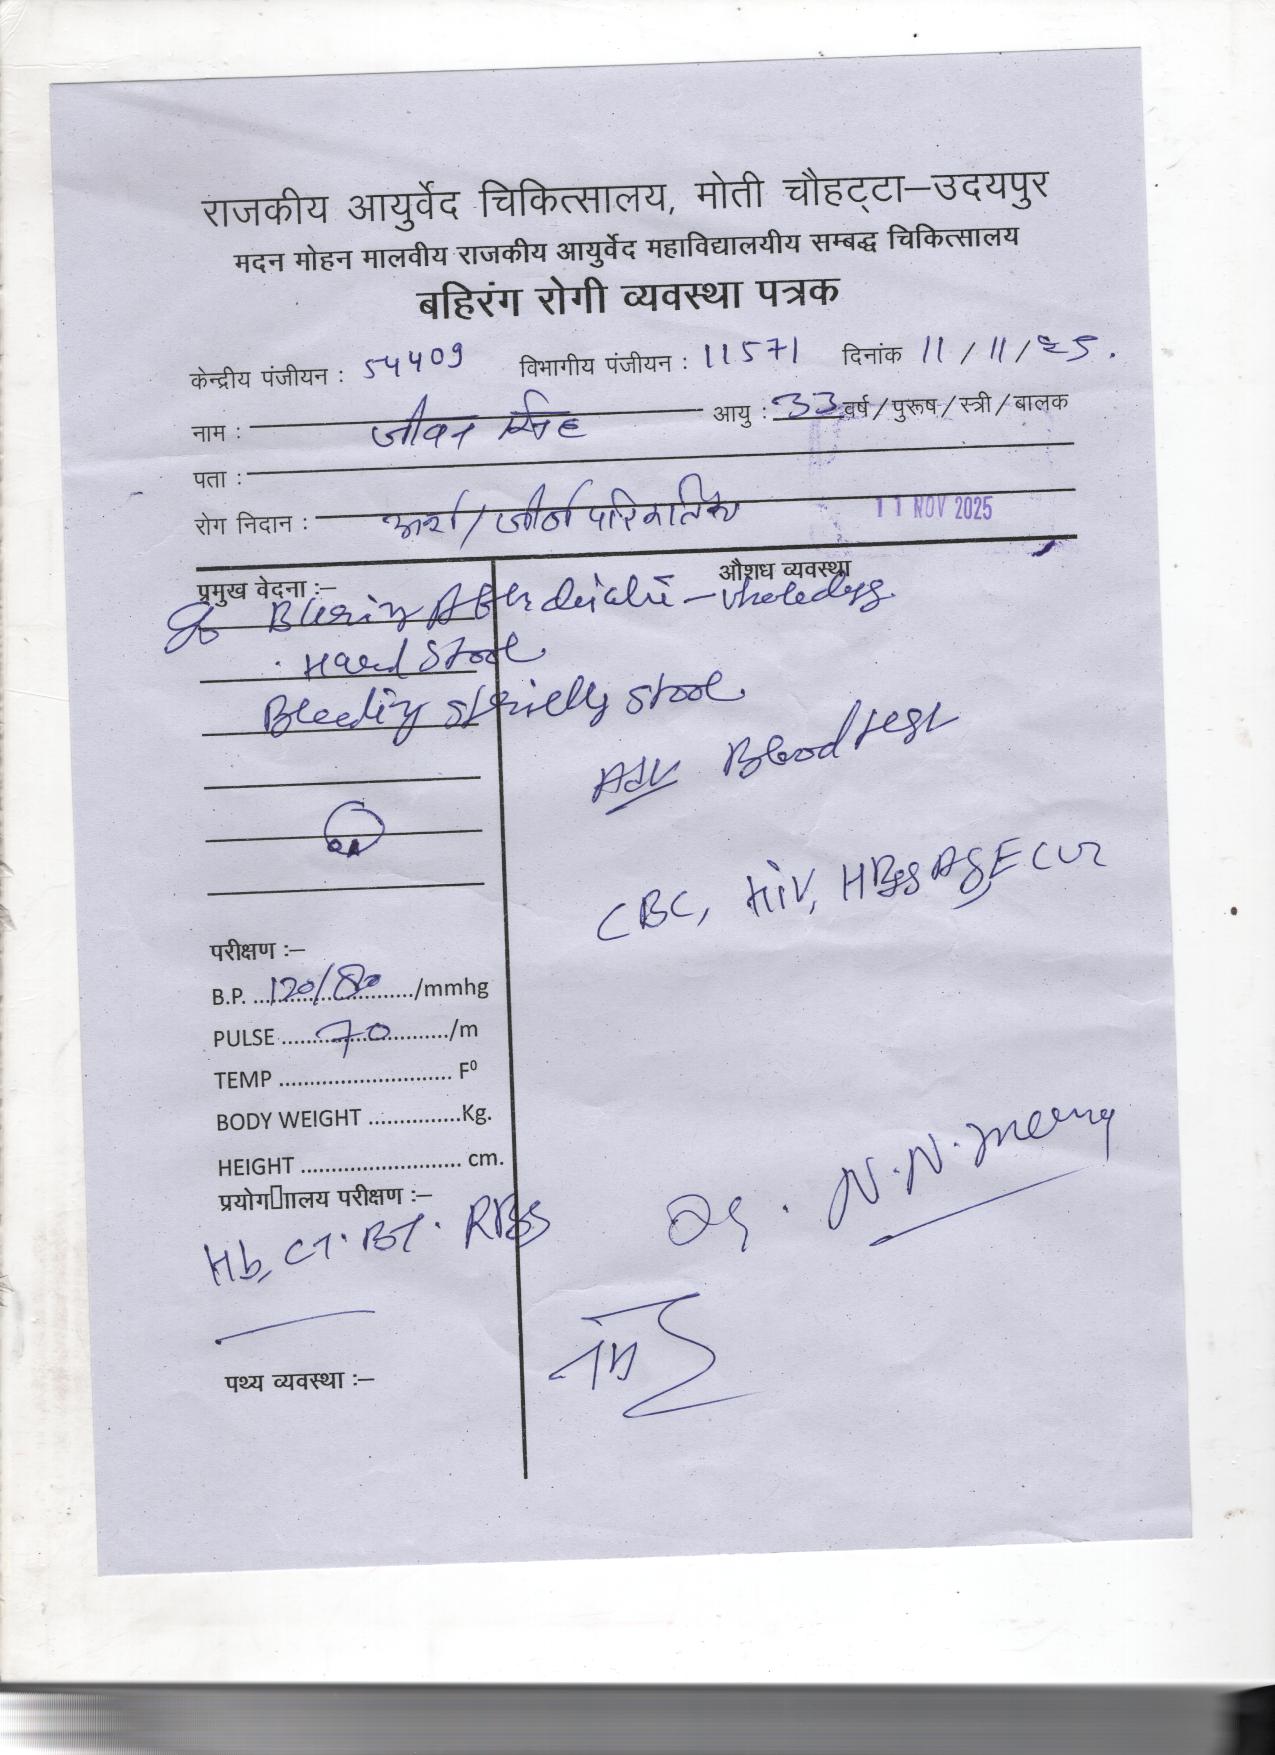 राजकीय आयुर्वेद चिकित्सालय, मोती चौहट्टा–उदयपुर
मदन मोहन मालवीय राजकीय आयुर्वेद महाविद्यालयीय सम्बद्ध चिकित्सालय
बहिरंग रोगी व्यवस्था पत्रक
केन्द्रीय पंजीयन : 54409 विभागीय पंजीयन : 11571 दिनांक 11/11/25.
नाम : जीवन सिंह आयु : 33 वर्ष/पुरूष/स्त्री/बालक
पता :
रोग निदान : अर्श/जीर्ण परिकर्तिका 11 NOV 2025
प्रमुख वेदना :– औशध व्यवस्था
After
Hard Stool
Bleeding stool
Adv Blood test
CBC, HiV, HBsAg ECG
परीक्षण :–
B.P. 120/80 /mmhg
PULSE 70 /m
TEMP F⁰
BODY WEIGHT Kg.
HEIGHT cm.
प्रयोग▯ाालय परीक्षण :–
Hb, CT. BT. RBS
Dr. N.N. Meena
पथ्य व्यवस्था :–